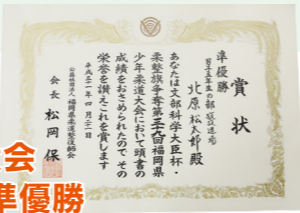 賞状
準優勝
北原松太郎殿
あなたは文部科学大臣杯・
柔整旗争奪第三九回福岡県
少年柔道大会において頭書の
成績をおさめられたのでその
栄誉を讃えこれを賞します
平成三十一年四月二十一日
公益社団法人福岡県柔道整復師会
会長 松岡保
会
準優勝